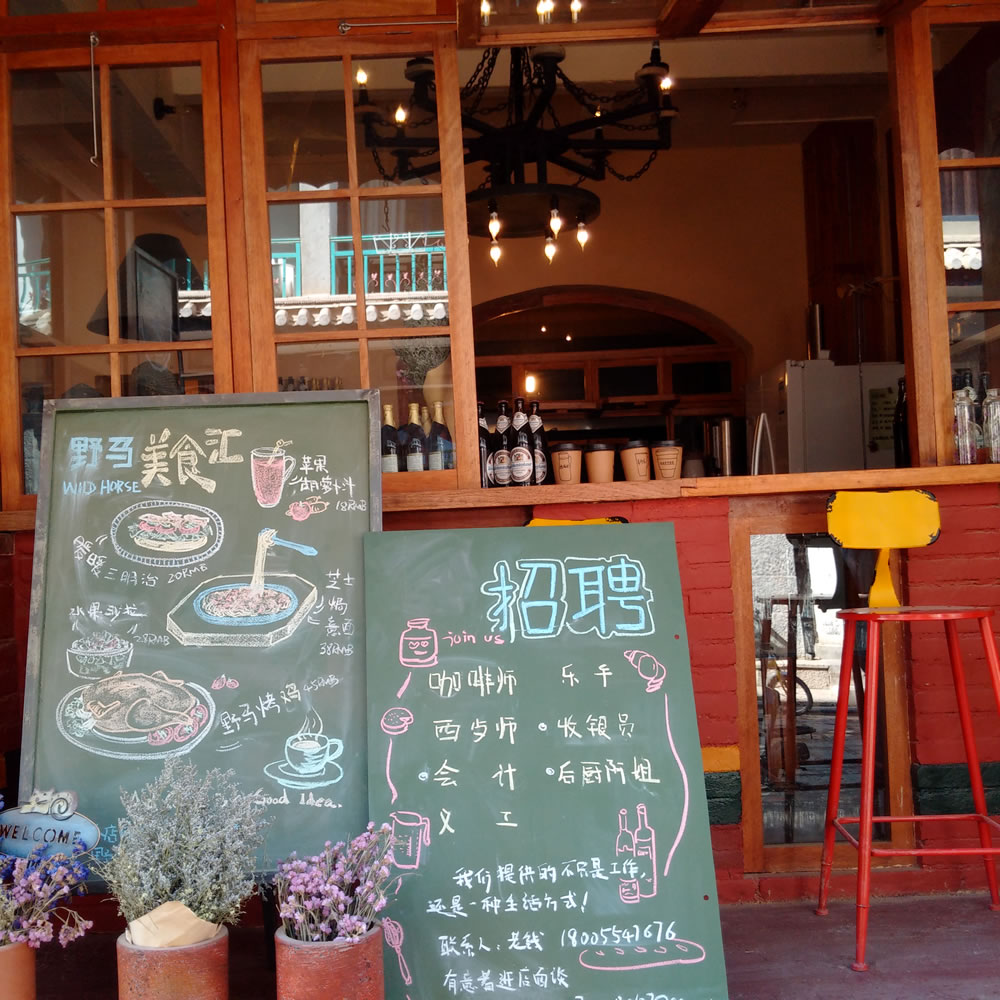 野马 美食汇
WILD HORSE
苹果
胡萝卜汁
18RMB
三明治 20RMB
芝士
焗
意面
38RMB
水果沙拉
28RMB
野马烤鸡 45RMB
Good Idea.
WELCOME
店
招聘
join us
咖啡师 乐手
西点师 • 收银员
• 会计 • 后厨阿姐
义工
我们提供的不只是工作,
还是一种生活方式!
联系人:老钱 18005547676
有意者进店面谈